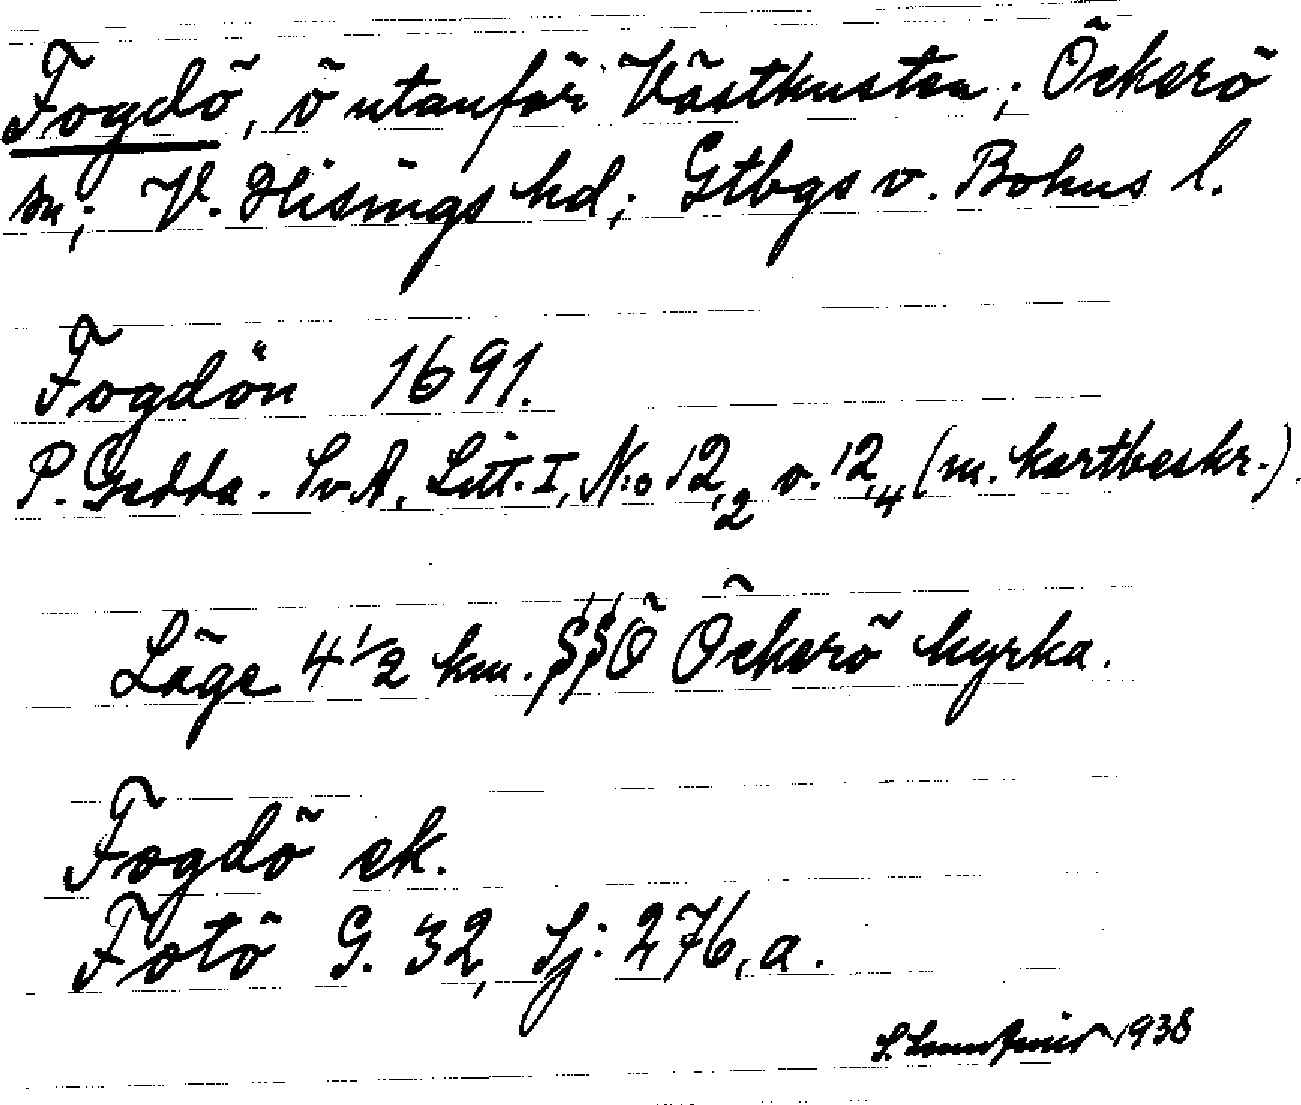 Fogdö, ö utanför Västkusten; Öckerö
sn; V. Hisings hd; Gtbgs o. Bohus l.
Fogdön 1691.
P. Gedda. SvA, Litt. I, N:o 12,2 o. 12,4 (m. kartbeskr.).
Läge 4 1/2 km. SSÖ Öckerö kyrka.
Fogdö ek.
Fotö G. 32, Sj: 276, a.
S. 1938